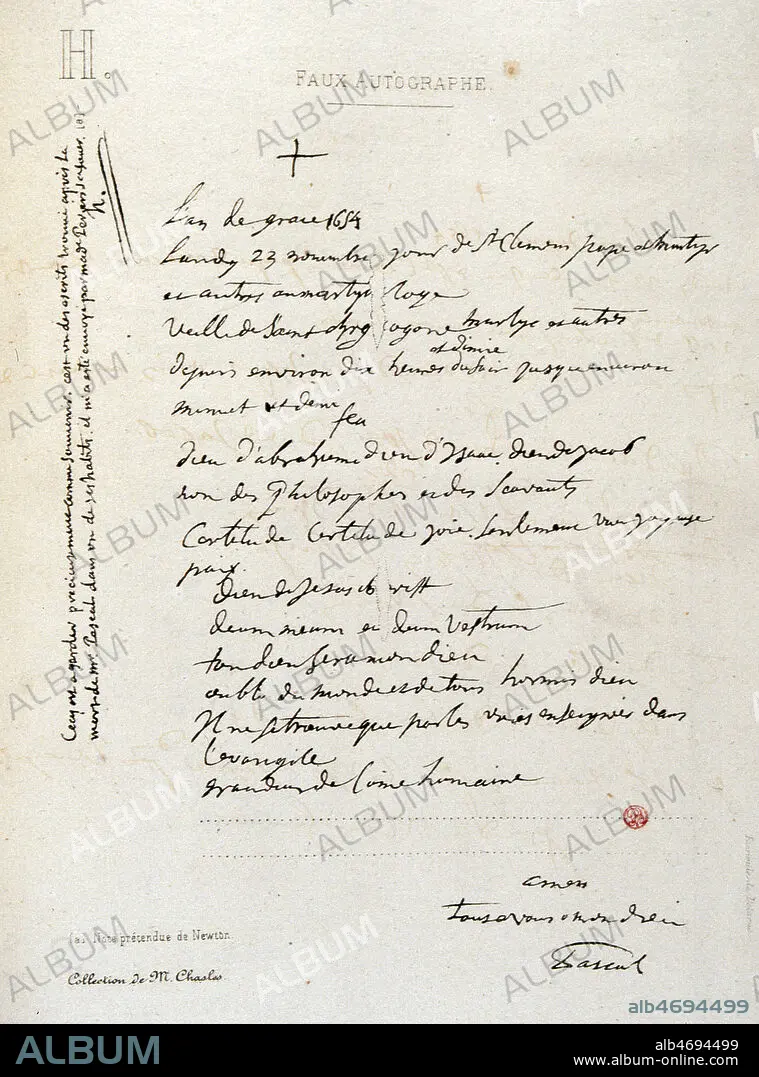 H.
FAUX AUTOGRAPHE.
Ceçy est a garder précieusement comme souvenir. c'est un des escrits trouvé après la
mort de Mr Pascal dans un de ses habits. et m'a esté envoyé par made Perier sa sœur. (a)
N.
L'an de grace 1654
Lundy 23 novembre jour de St Clement pape et martyr
et autres au martyrologe
Veille de Saint Chrysogone martyr et autres
depuis environ dix heures et dimie du soir jusque environ
minuit et demi
feu
dieu d'abraham dieu d'Isaac. dieu de jacob
non des philosophes et des scavants
Certitude Certitude joie. sentiment vue joye
paix.
Dieu de Jesus christ
deum meum et deum vestrum
ton dieu sera mon dieu
oubli du monde et de tous hormis dieu
Il ne se trouve que par les voies enseignées dans
l'evangile
grandeur de l'âme humaine
amen
tous a vous o mon dieu
Pascal
(a) Note prétendue de Newton.
Collection de M. Chasles.
ALBUM
alb4694499
ALBUM
alb4694499
www.album-online.com